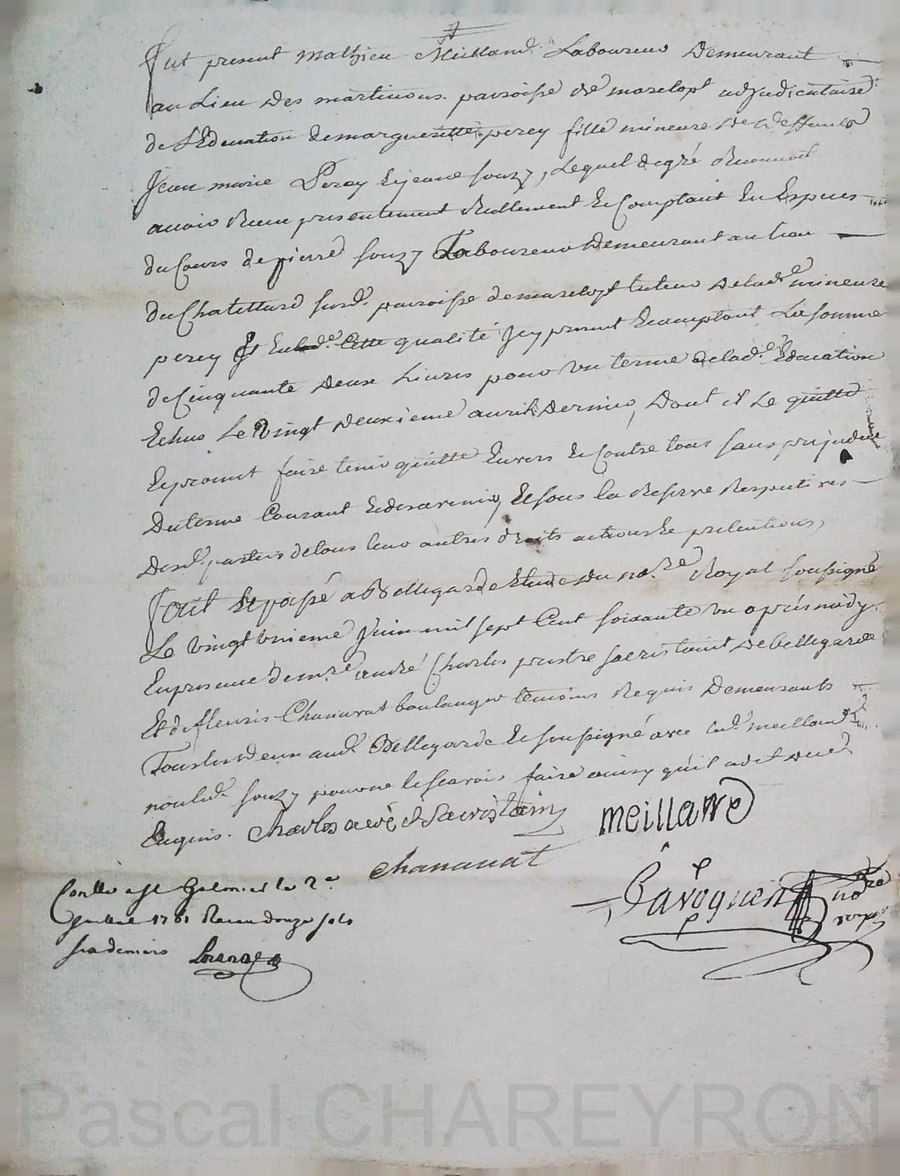 Fut present mathieu Meilland Laboureur Demeurant
au Lieu Des martinons paroisse de marclopt adjudicataire
de L'Education demargueritte perey fille mineure De deffunts
Jean marie Perey Et jeane souzy, Lequel degré Reconnoit
avoir Receu presentement Reellement Et Comptant En Especes
du Cours de pierre souzy Laboureur Demeurant au lieu
du Chatellard surd. paroisse demarclopt tuteur Delad.e mineure
perey Et En lad.e Cette qualité Icy present Ecomptant La somme
de Cinquante Deux Livres pour un terme delad.e Education
Echus Le Vingt Deuxieme avril Dernier, Dont il Le quitte
Et promet faire tenir quitte Envers Et Contre tous sans prejudice
Du terme Courant Et desavenir, Et sous La Reserve Respective
Desd. parties de tous leur autres droits actions Et pretentions,
fait Et passé a Bellegarde Etude Du no.re Royal soussigné
Le Vingt unieme Juin mil sept Cent soixante un après midy
En presence de m.re andré Charles prestre sacristain De bellegarde
Et de fleuris Chanavat boulanger temoins Requis Demeurants
Tous les deux aud. Bellegarde Et soussigné avec led. meilland
non led. souzy pour ne le scavoir faire ainsy qu'il a dit De ce
Enquis. Charles curé et Sacristain meilland
chanavat
Gavoguen no.re royal
Conllé a St Galmier le 2.e
Juillet 1761 Receu douze sols
six deniers